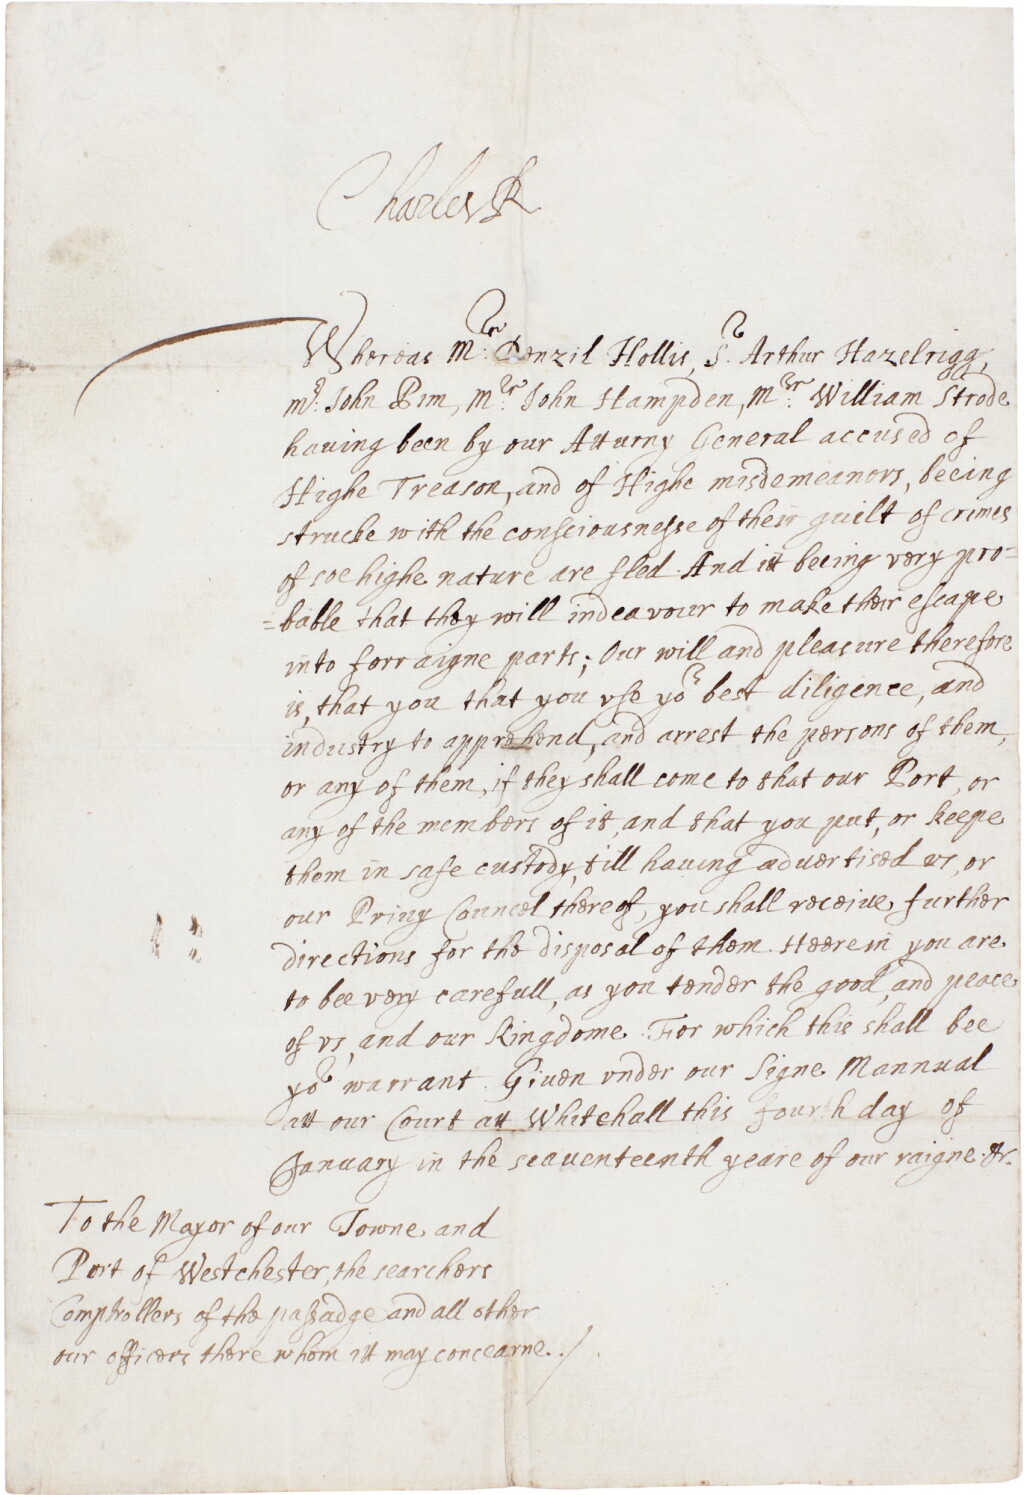 Charles R
Whereas Mr. Denzil Hollis, Sr. Arthur Hazelrigg,
mr. John Pim, Mr. John Hampden, Mr. William Strode
hauing been by our Atturny General accused of
Highe Treason, and of Highe misdemeanors, beeing
strucke with the consciousnesse of their guilt of crimes
of soe highe nature are fled. And itt beeing very pro=
=bable that they will indeavour to make their escape
into forraigne parts; Our will and pleasure therefore
is, that you that you vse yor best diligence, and
industry to apprehend, and arrest the persons of them,
or any of them, if they shall come to that our Port, or
any of the members of it, and that you put, or keepe
them in safe custody, till hauing advertised vs, or
our Priuy Councel thereof, you shall receiue further
directions for the disposal of them. Heerein you are
to bee very carefull, as you tender the good, and peace
of vs, and our Kingdome. For which this shall bee
yor warrant. Giuen vnder our Signe Mannual
att our Court att Whitehall this fourth day of
January in the seauenteenth yeare of our raigne. &c.
To the Mayor of our Towne and
Port of Westchester, the searchers
Comptrollers of the passadge and all other
our officers there whom itt may concearne. ./.